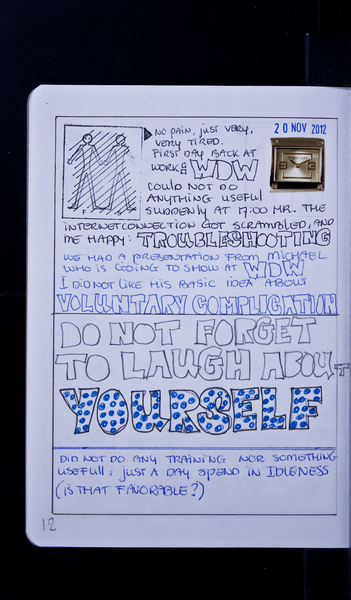 20 NOV 2012
NO PAIN, JUST VERY,
VERY TIRED.
FIRST DAY BACK AT
WORK: WDW
COULD NOT DO
ANYTHING USEFUL
SUDDENLY AT 17:00 HR. THE
INTERNETCONNECTION GOT SCRAMBLED, AND
ME HAPPY: TROUBLESHOOTING
WE HAD A PRESENTATION FROM MICHAEL
WHO IS GOING TO SHOW AT WDW
I DID NOT LIKE HIS BASIC IDEA ABOUT
VOLUNTARY COMPLICATION
DO NOT FORGET
TO LAUGH ABOUT
YOURSELF
DID NOT DO ANY TRAINING NOR SOMETHING
USEFULL, JUST A DAY SPEND IN IDLENESS
(IS THAT FAVORABLE?)
12